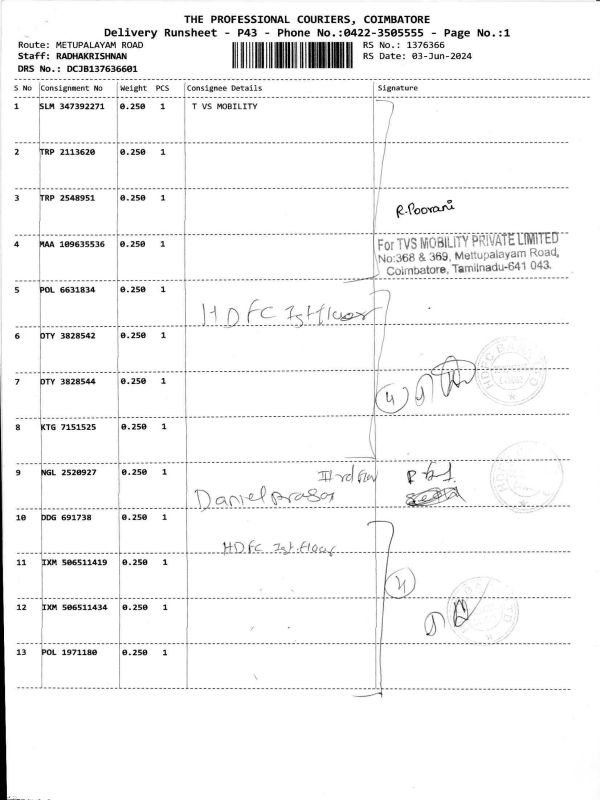 THE PROFESSIONAL COURIERS, COIMBATORE
Delivery Runsheet - P43 - Phone No.:0422-3505555 - Page No.:1
Route: METUPALAYAM ROAD RS No.: 1376366
Staff: RADHAKRISHNAN RS Date: 03-Jun-2024
DRS No.: DCJB137636601
S No Consignment No Weight PCS Consignee Details Signature
1 SLM 347392271 0.250 1 T VS MOBILITY
2 TRP 2113620 0.250 1
3 TRP 2548951 0.250 1
R.Poorani
4 MAA 109635536 0.250 1 For TVS MOBILITY PRIVATE LIMITED
No:368 & 369, Mettupalayam Road,
Coimbatore, Tamilnadu-641 043.
5 POL 6631834 0.250 1
HDFC Ist floor
6 OTY 3828542 0.250 1
7 OTY 3828544 0.250 1
4
8 KTG 7151525 0.250 1
9 NGL 2520927 0.250 1 IIrd
10 DDG 691738 0.250 1
HDFC Ist. Floor
11 IXM 506511419 0.250 1
4
12 IXM 506511434 0.250 1
13 POL 1971180 0.250 1